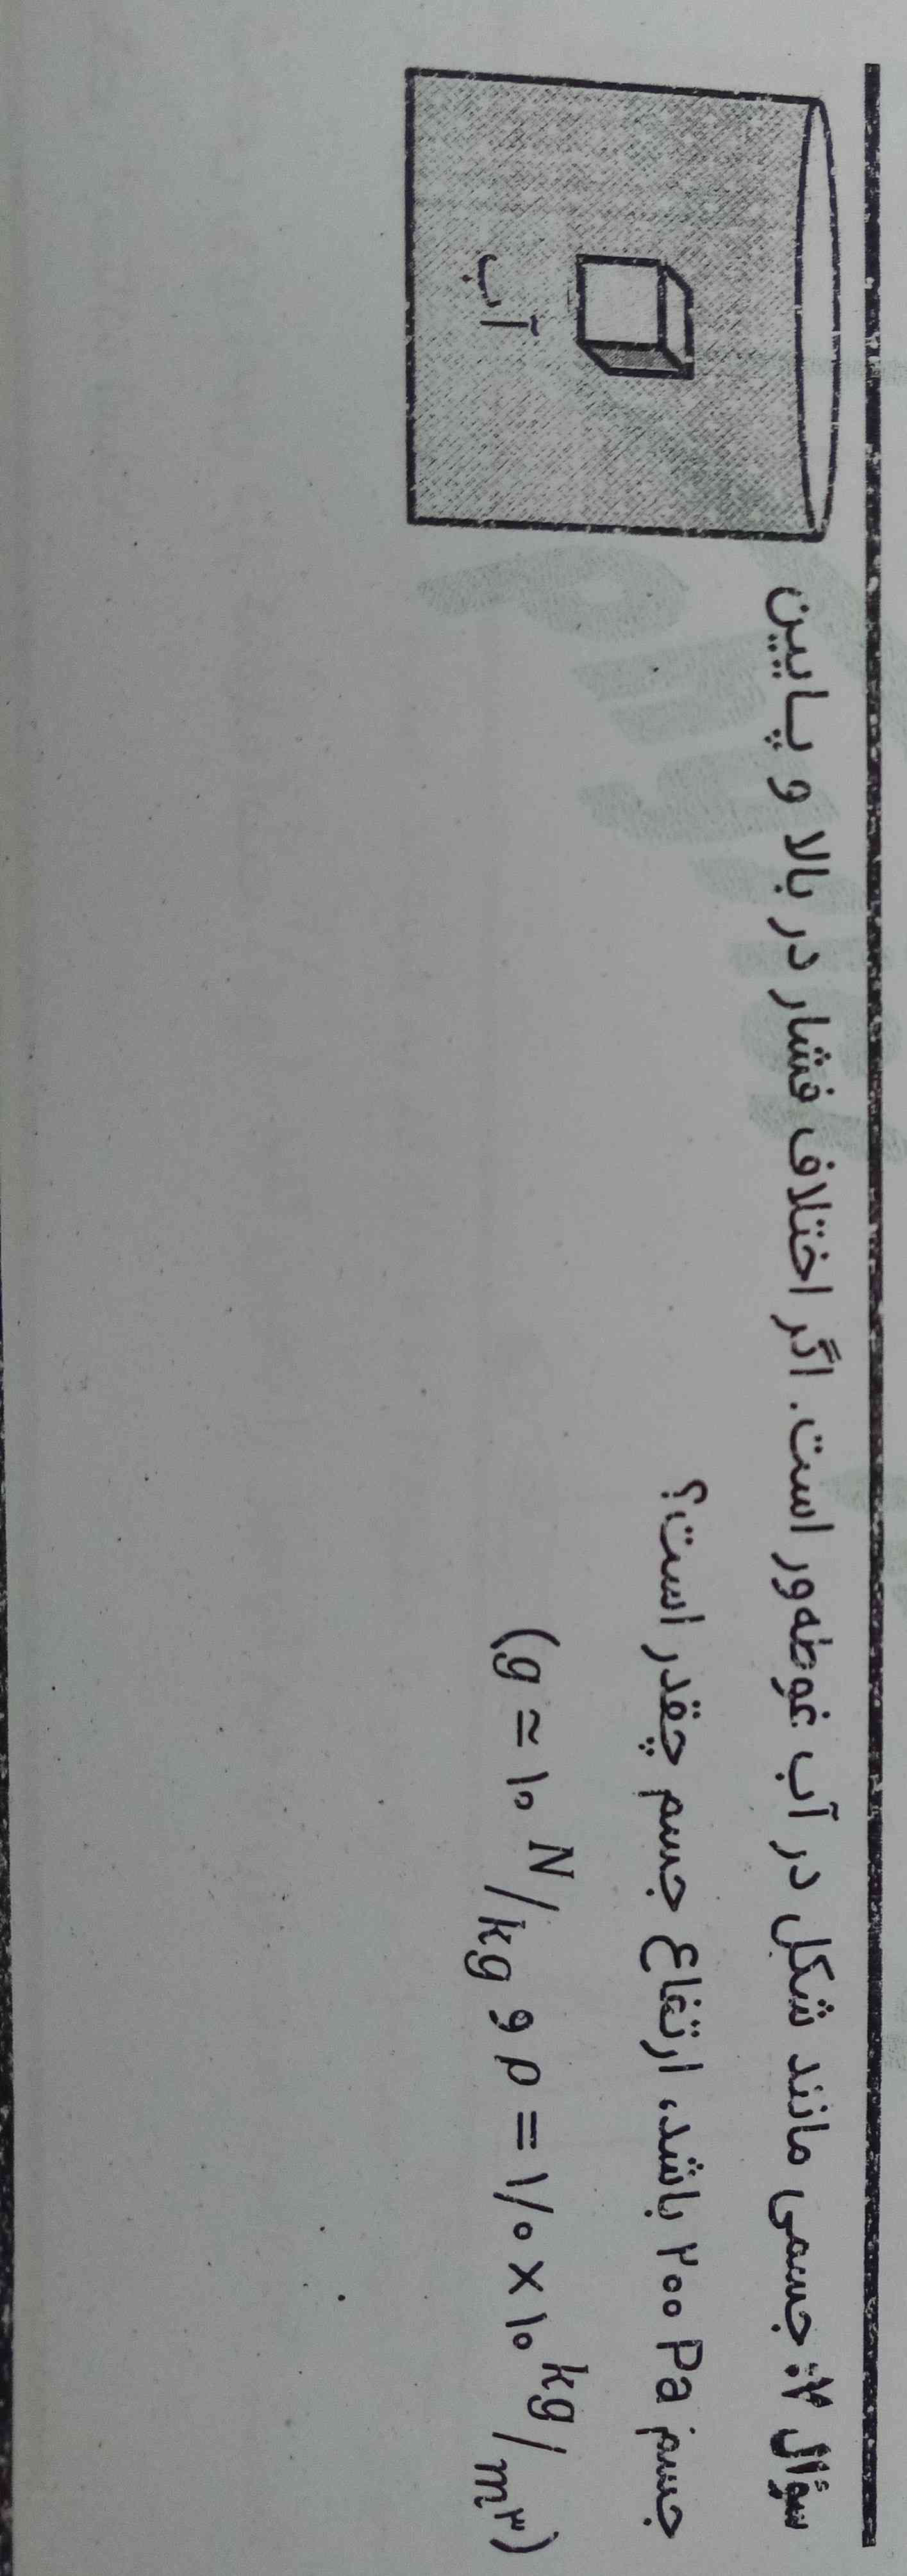 سؤال ۷: جسمی مانند شکل در آب غوطه‌ور است. اگر اختلاف فشار در بالا و پایین
جسم ۲۰۰ Pa باشد، ارتفاع جسم چقدر است؟
(g ≃ ۱۰ N/kg و ρ = ۱/۰ × ۱۰ kg/m³)
آب